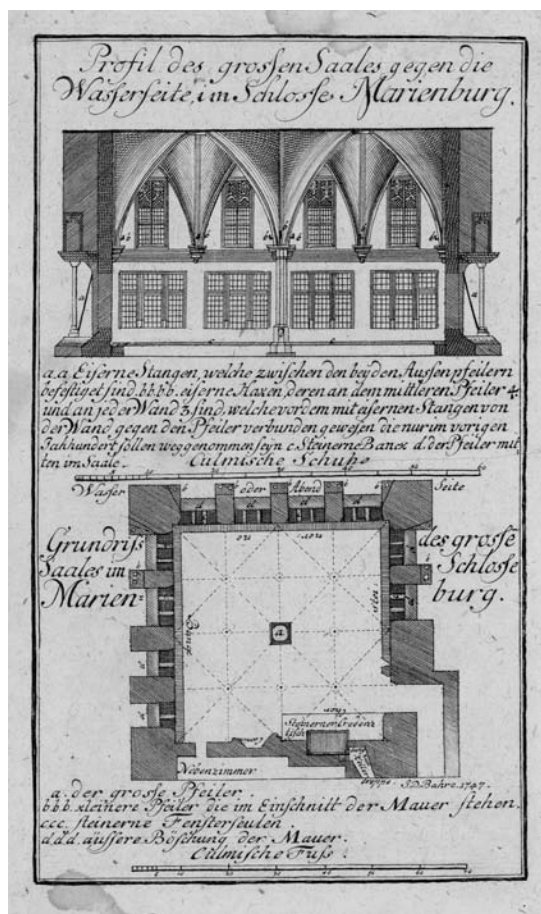 Profil des grossen Saales gegen die
Wasserseite, im Schlosse Marienburg.
a.a Eiserne Stangen, welche zwischen den beyden Aussenpfeilern
befestiget sind. b.b.b.b. eiserne Haxen, deren an dem mittleren Pfeiler 4.
und an jeder Wand 3 sind, welche vordem mit eisernen Stangen von
der Wand gegen den Pfeiler verbunden gewesen die nur im vorigen
Jahhundert sollen weggenommen seyn c Steinerne Bancx d. der Pfeiler mit
ten im Saale.
Culmische Schuhe
Wasser oder Abend Seite
Grundriss des grosse
Saales im Schlosse
Marien- burg.
a
Steinerner Credenz
tisch
Nebenzimmer
treppe. J.D. Bahre. 1747.
a. der grosse Pfeiler.
b.b.b. kleinere Pfeiler die im Einschnitt der Mauer stehen.
c.c.c. steinerne Fensterseulen.
d.d.d. äussere Böschung der Mauer.
Culmische Fuss